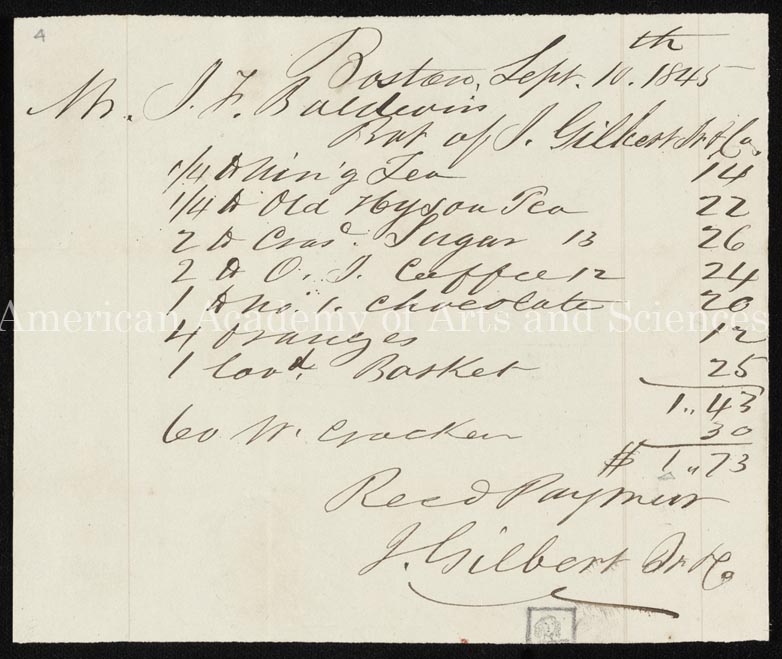 4
Boston, Sept. 10th. 1845
Mr. J. F. Baldwin
Bot of J. Gilbert Jr & Co.
1/4 lb Nin'g Tea 14
1/4 lb Old Hyson Tea 22
2 lb Crasd. Sugar 13 26
2 lb O. J. Coffee 12 24
1 lb No. 1. Chocolate 20
American Academy of Arts and Sciences
4 Oranges 12
1 Covd. Basket 25
1,,43
60 W. Cracker 30
$ 1,,73
Recd Payment
J. Gilbert Jr & Co.